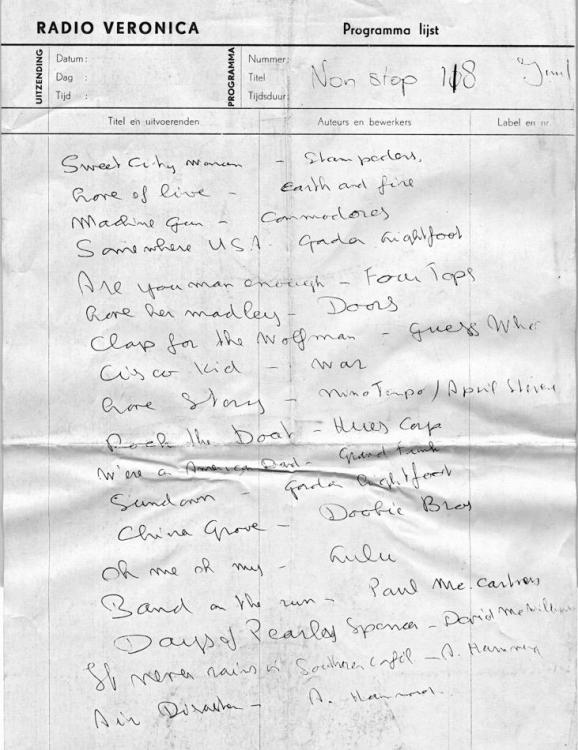 RADIO VERONICA Programma lijst
UITZENDING
Datum:
Dag :
Tijd :
PROGRAMMA
Nummer:
Titel
Tijdsduur:
Non stop 118
Titel en uitvoerenden Auteurs en bewerkers Label en nr.
Sweet City woman - Stampeders,
Love of live - Earth and fire
Machine Gun - Commodores
Somewhere U.S.A. Gordon Lightfoot
Are you man enough - Four Tops
Love her madley - Doors
Clap for the Wolfman - Guess Who
Cisco Kid - War
Love Story - Nino Tempo / April Steven
Rock the Boat - Hues Corp
We're an American Band - Grand Funk
Sundown - Gordon Lightfoot
China Grove - Doobie Bros
Oh me oh my - Lulu
Band on the run - Paul Mc. Cartney
Days of Pearley Spencer - David
It never rains in Southern Calif - A. Hammond
Air Disaster - A. Hammond.